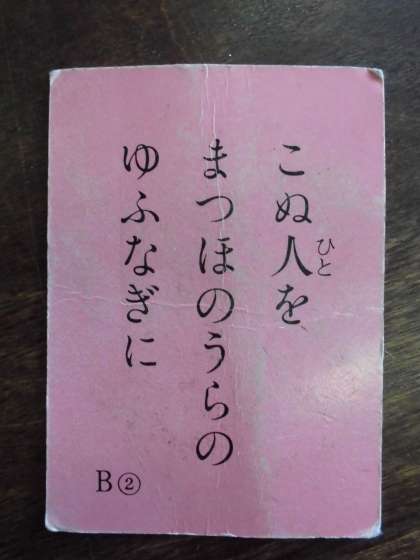 こぬ人を
ひと
まつほのうらの
ゆふなぎに
B②